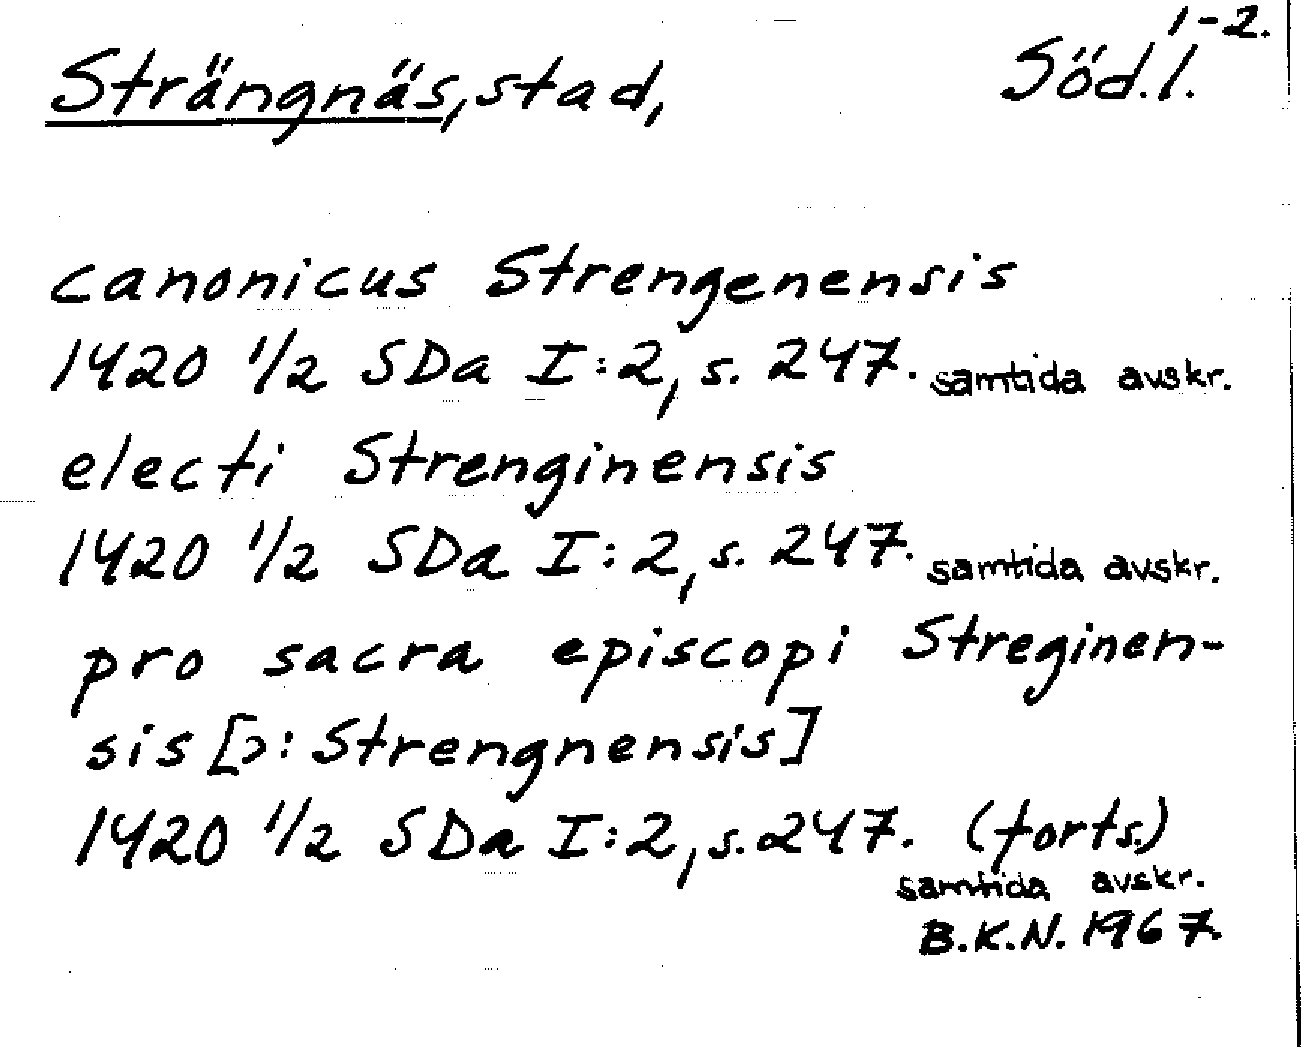 1-2.
Strängnäs, stad, Söd.l.
canonicus Strengenensis
1420 1/2 SDa I:2, s. 247. samtida avskr.
electi Strenginensis
1420 1/2 SDa I:2, s. 247. samtida avskr.
pro sacra episcopi Streginen-
sis [ɔ: Strengnensis]
1420 1/2 SDa I:2, s. 247. (forts.)
samtida avskr.
B.K.N. 1967